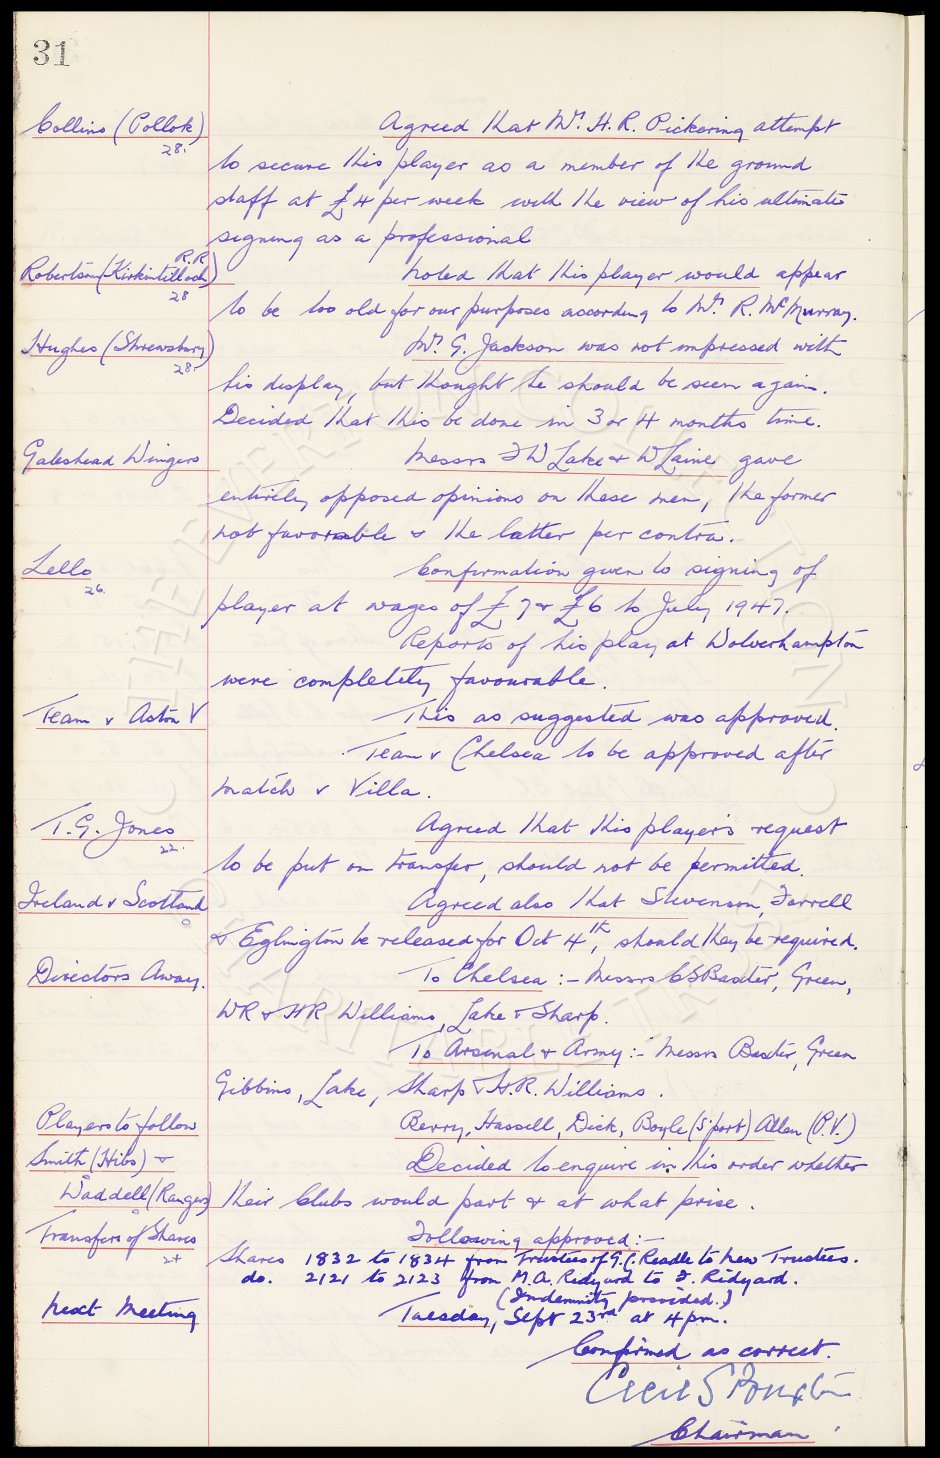 31
Collins (Pollok) Agreed that Mr. H. R. Pickering attempt
28.
to secure this player as a member of the ground
staff at £4 per week with the view of his ultimate
signing as a professional
R.R.
Robertson (Kirkintilloch) Noted that this player would appear
28
to be too old for our purposes according to Mr. R. McMurray.
Hughes (Shrewsbury) Mr. G. Jackson was not impressed with
28.
his display, but thought he should be seen again.
Decided that this be done in 3 or 4 months time.
Gateshead Wingers Messrs F W Lake & W Laine gave
entirely opposed opinions on these men, the former
not favorable & the latter per contra.
Lello Confirmation given to signing of
26.
player at wages of £7 & £6 to July 1947.
Reports of his play at Wolverhampton
were completely favourable.
Team v Aston V This as suggested was approved.
Team v Chelsea to be approved after
match v Villa.
T.G. Jones Agreed that this player's request
22.
to be put on transfer, should not be permitted.
Ireland v Scotland Agreed also that Stevenson, Farrell
& Eglington be released for Oct 4th, should they be required.
Directors Away. To Chelsea :- Messrs CSBaxter, Green,
WR & HR Williams, Lake & Sharp.
To Arsenal & Army :- Messrs Baxter, Green
Gibbins, Lake, Sharp & H.R. Williams.
Players to follow Berry, Hassell, Dick, Boyle (S'port) Allen (P.V.)
Smith (Hibs) & Decided to enquire in this order whether
Waddell (Rangers) their Clubs would part & at what price.
Transfers of Shares Following approved :-
24
Shares 1832 to 1834 from Trustees of G.C. Readle to new Trustees.
do. 2121 to 2123 from M.A. Ridyard to F. Ridyard.
(Indemnity provided.)
Next Meeting Tuesday, Sept 23rd at 4pm.
Confirmed as correct.
Cecil S
Chairman
THE EVERTON COLLECTION
CHARITABLE TRUST